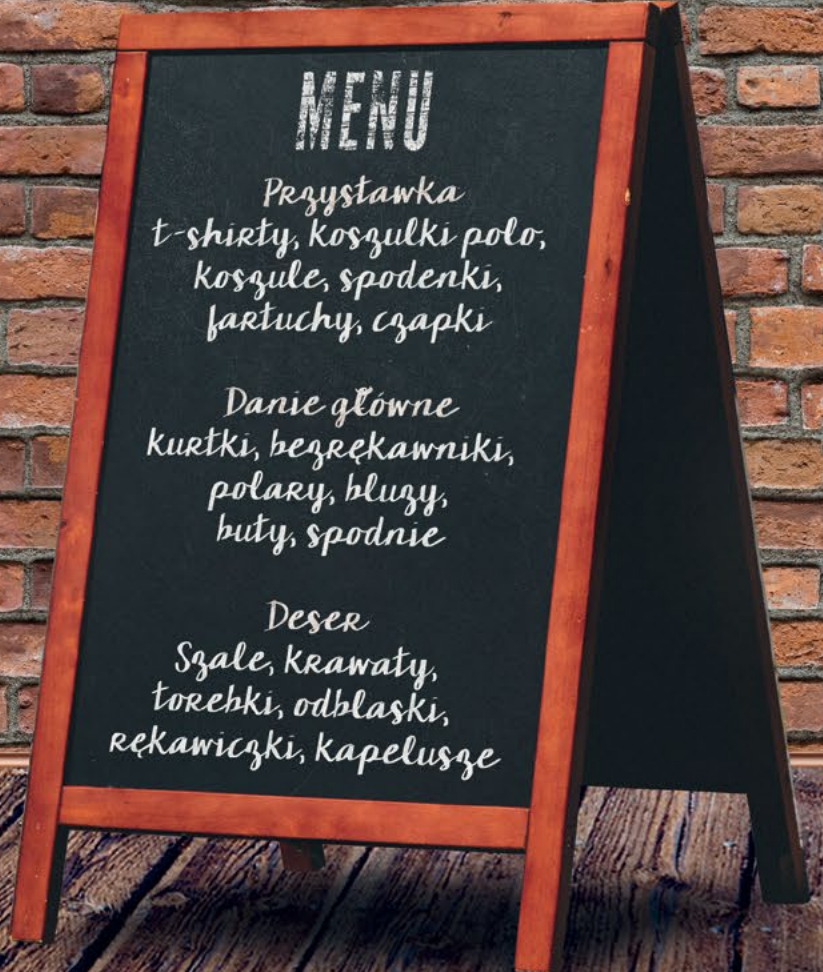 MENU
Przystawka
t-shirty, koszulki polo,
koszule, spodenki,
fartuchy, czapki
Danie główne
kurtki, bezrękawniki,
polary, bluzy,
buty, spodnie
Deser
Szale, krawaty,
torebki, odblaski,
rękawiczki, kapelusze